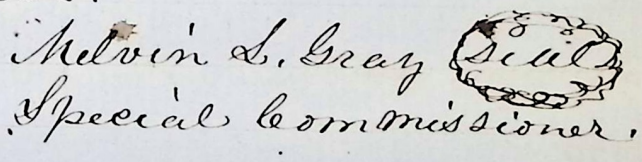 Melvin L. Gray Seal
Special Commissioner.